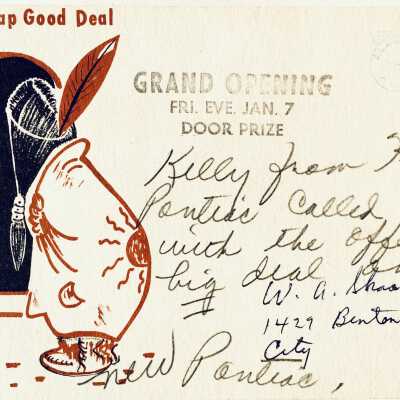 ap Good Deal
GRAND OPENING
FRI. EVE. JAN. 7
DOOR PRIZE
Kelly from
Pontiac Called
with the offe
big deal on
W. A. Shaa
1429 Benton
City
new Pontiac,